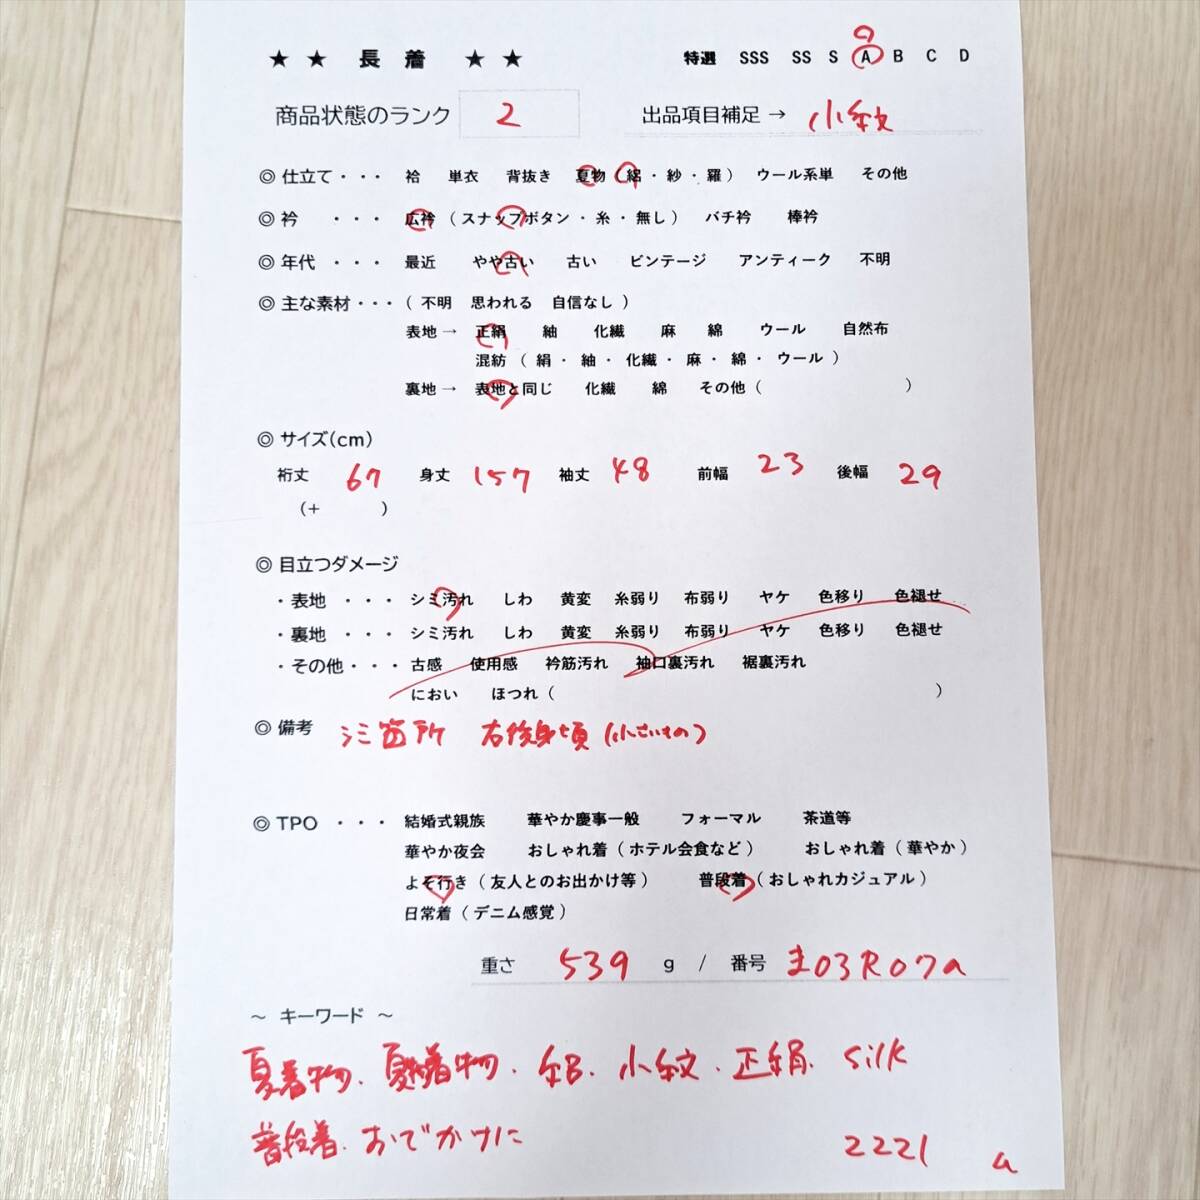 ★ ★ 長 着 ★ ★ 特選 SSS SS S A B C D
商品状態のランク 2 出品項目補足 → 小紋
◎ 仕立て・・・ 袷 単衣 背抜き 夏物（絽・紗・羅） ウール系単 その他
◎ 衿 ・・・ 広衿（スナップボタン・糸・無し） バチ衿 棒衿
◎ 年代 ・・・ 最近 やや古い 古い ビンテージ アンティーク 不明
◎ 主な素材・・・（ 不明 思われる 自信なし ）
表地→ 正絹 紬 化繊 麻 綿 ウール 自然布
混紡（ 絹・紬・化繊・麻・綿・ウール ）
裏地→ 表地と同じ 化繊 綿 その他（ ）
◎ サイズ(cm)
裄丈 67 身丈 157 袖丈 48 前幅 23 後幅 29
（+ ）
◎ 目立つダメージ
・表地 ・・・ シミ汚れ しわ 黄変 糸弱り 布弱り ヤケ 色移り 色褪せ
・裏地 ・・・ シミ汚れ しわ 黄変 糸弱り 布弱り ヤケ 色移り 色褪せ
・その他・・・ 古感 使用感 衿筋汚れ 袖口裏汚れ 裾裏汚れ
におい ほつれ（ ）
◎ 備考 シミ箇所 右後身頃（小さいもの）
◎ TPO ・・・ 結婚式親族 華やか慶事一般 フォーマル 茶道等
華やか夜会 おしゃれ着（ホテル会食など） おしゃれ着（華やか）
よそ行き（友人とのお出かけ等） 普段着（おしゃれカジュアル）
日常着（デニム感覚）
重さ 539 g / 番号 ま03R07a
～ キーワード ～
夏着物・夏着物・絽・小紋・正絹・silk
普段着・おでかけに
2221 a